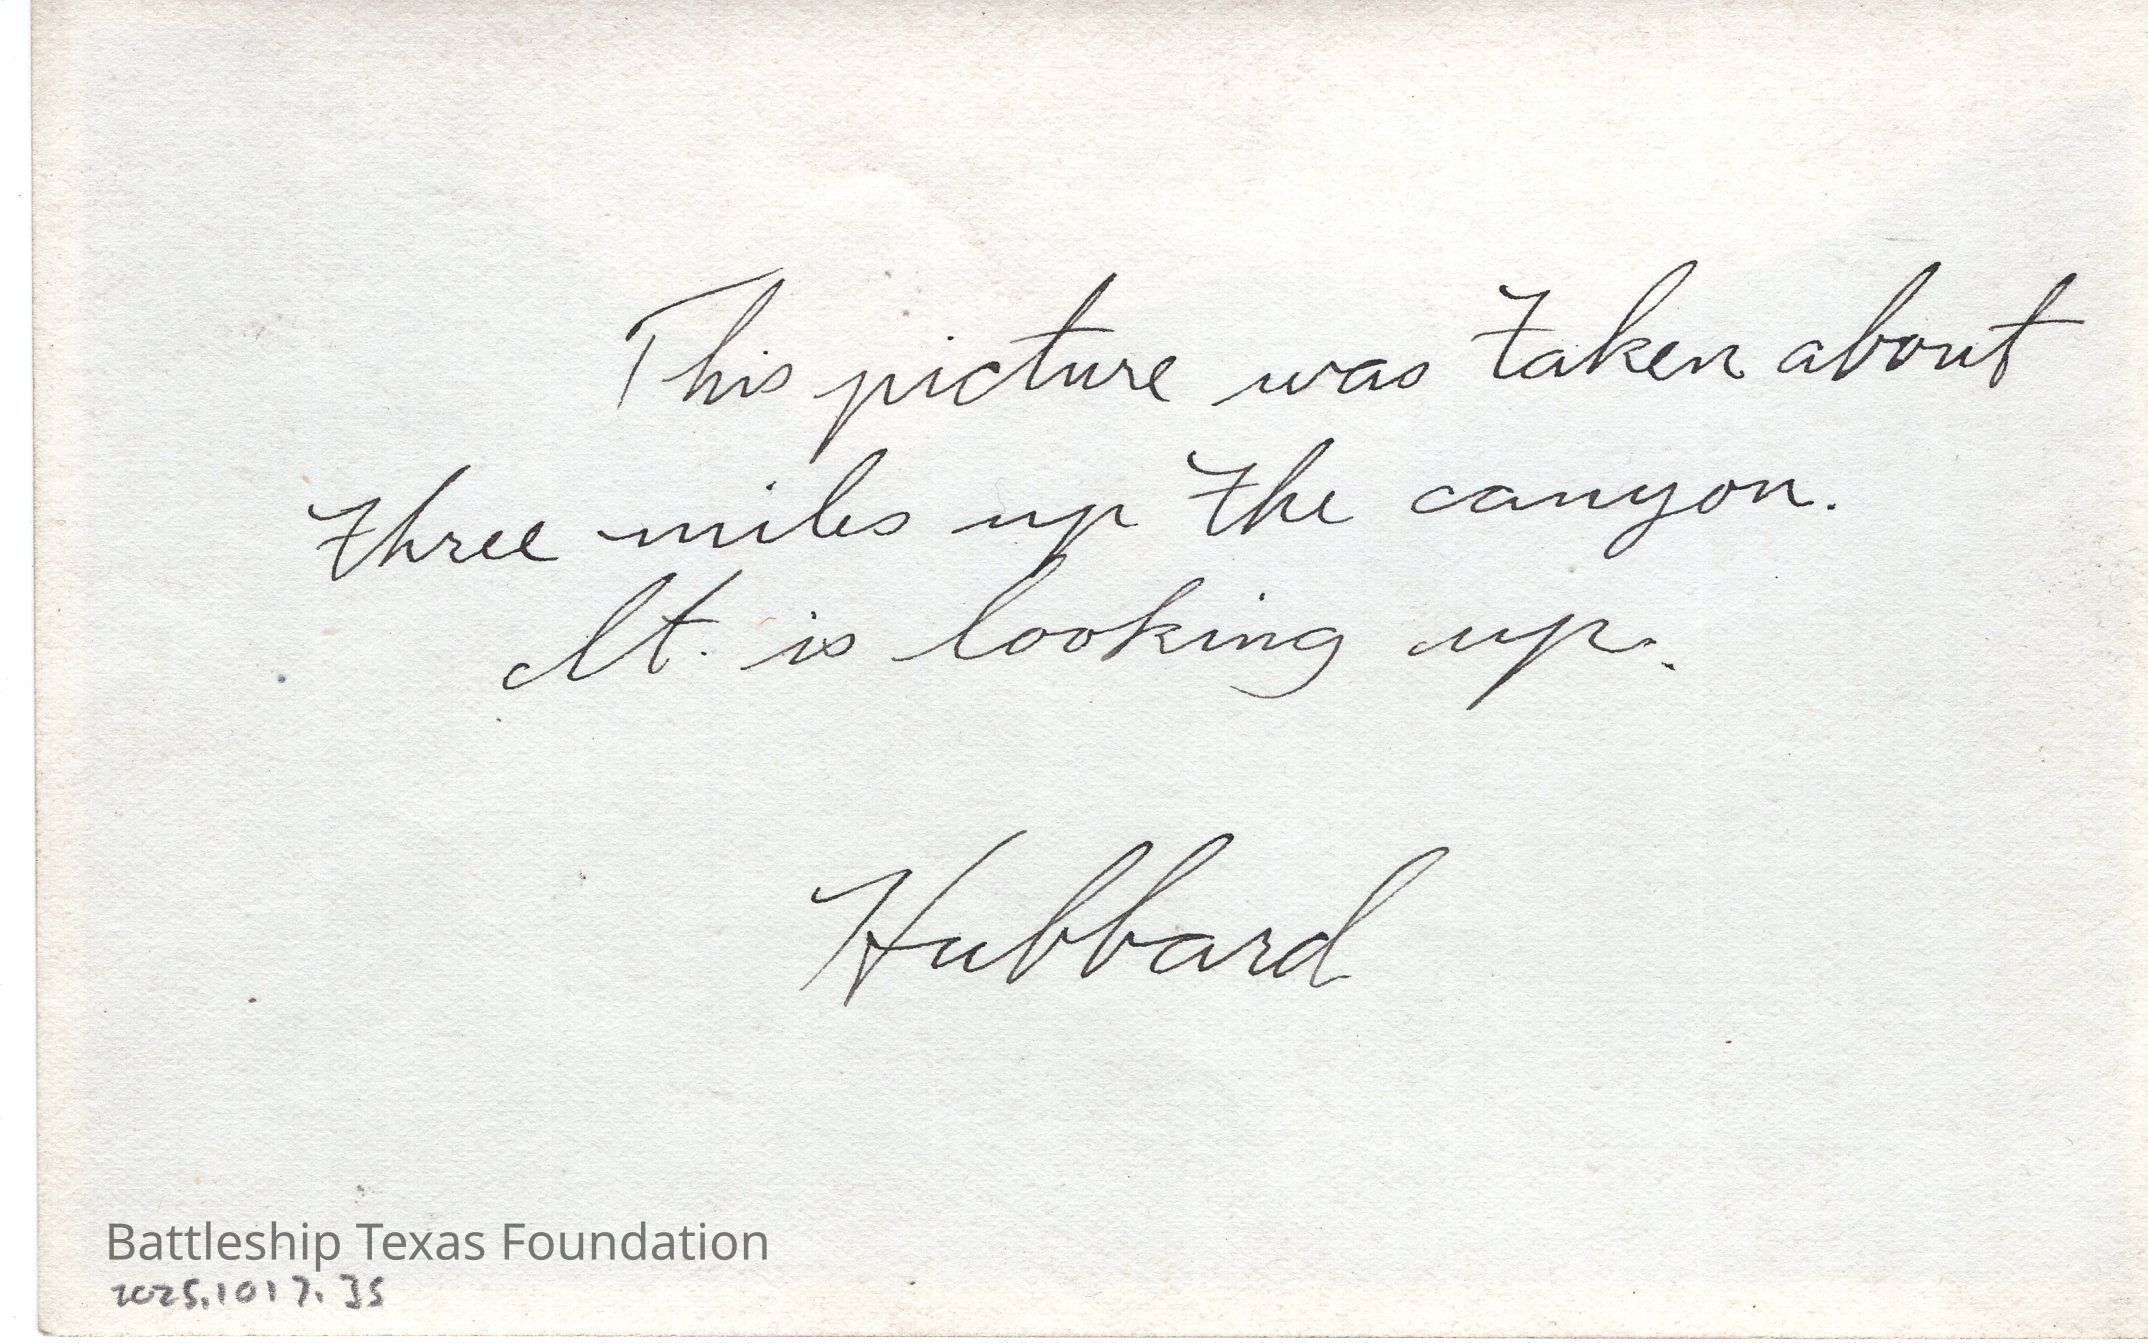 This picture was taken about
three miles up the canyon.
It. is looking up.
Hubbard
Battleship Texas Foundation
2025.1017.35